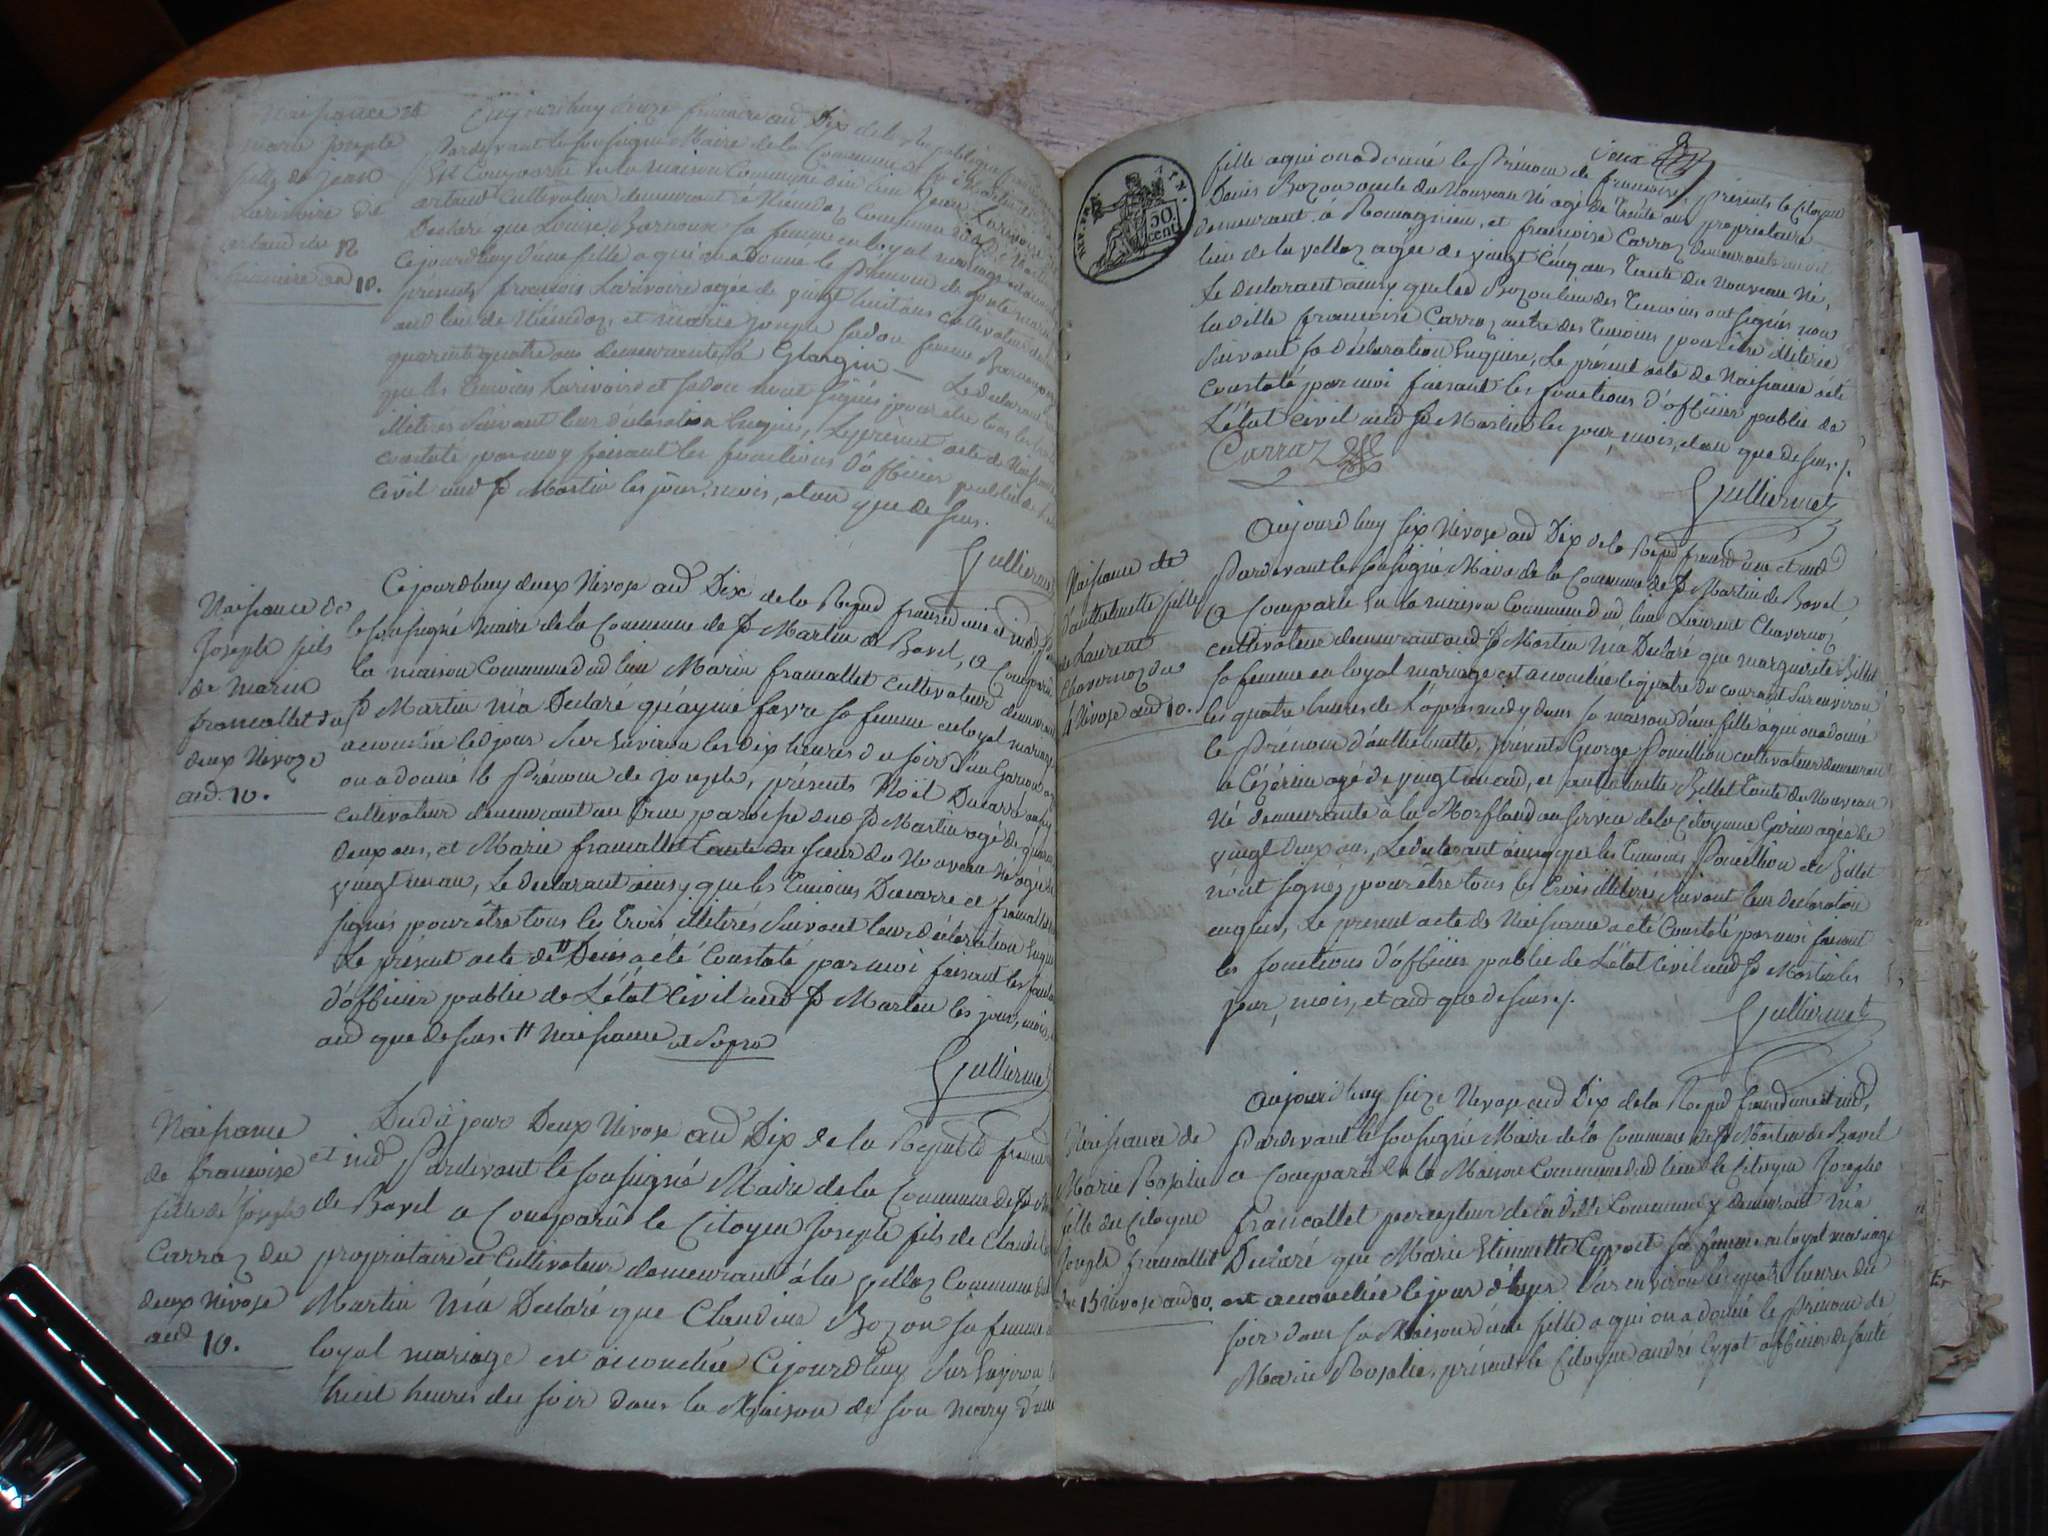 Naissance de
marie josepte
fille de jean
Larivoire de
du 12
frimaire an 10.
Aujourdhuy douze frimaire and Dix de la République
Pardevant le soussigné Maire de la Commune de St Martin
Est Comparu en la maison Commune dud lieu Jean Larivoire
cultivateur demeurant à Commune dud St Martin
Declaré que Louise Barnoux sa femme en loyal mariage
Cejourdhuy d'une fille a qui on a Donné le Prénom de
présents françois Larivoire agée de vingt huit ans cultivateur
aud lieu de et marie josepte femme
quarente quatre ans demeurante à Glargin Le declarant
que les Temoins Larivoire et n'ont signés pour etre tous les
illiterés suivant leur déclaration Enquise, Le présent acte de Naissance
constaté par moy faisant les fonctions d'officier public de
Civil aud St Martin les jour, mois, et an que dessus.
Gulliermet
Naissance de
Joseph fils
de Marin
francallet du
deux Nivoze
and. 10.
Cejourdhuy deux Nivose and Dix de la Repud francd une et ind
le soussigné maire de la Commune de St Martin de Bavel, a Comparu
la maison Commune dud lieu Marin francallet cultivateur demeurant
St Martin M'a Declaré qu'aymé favre sa femme en loyal mariage
acouchée led jour sur Lenviron les dix heures du soir d'un Garçon a
on a donné le Prénom de joseph, présents Noël Ducarre
cultivateur demeurant au paroisse dud St Martin agé de
deux ans, et Marie francallet tante du sœur du Nouveau Né agée
vingt un an, Le declarant ainsy que les Temoins Ducarre et francallet
signés pour être tous les Trois illiterés Suivant leur déclaration Enquise
Le présent acte de # Decés a été Constaté par moi faisant les fonctions
d'officier public de L'état Civil aud St Martin les jour, mois,
and que dessus. # Naissance
Gulliermet
Naissance
de francoise
fille de Joseph
Carraz du
deux Nivose
and 10.
Dudit jour Deux Nivose and Dix de la Republ francd
et ind Pardevant le soussigné Maire de la Commune de St
de Bavel a Comparû le Citoyen Joseph fils de Claude
propriotaire et Cultivateur demeurant à la Villaz Commune
Martin M'a Declaré que Claudine Bozon sa femme
loyal mariage est acouchée Cejourdhuy sur Lenviron
huit heures du soir dans la Maison de son mary d'une
fille a qui on a donné le Prénom de francoise, présents le Citoyen
Denis Bozon oncle du Nouveau Né agé de Trente ans propriétaire
demeurant à Romagnieu, et francoise Carraz demeurante aud
lieu de la villaz agée de vingt cinq ans Tante du Nouveau Né,
Le declarant ainsy que led Bozon l'un des Temoins ont signés non
laditte francoise Carraz autre des Temoins pour etre illiterée
suivant sa déclaration Enquise, Le présent acte de Naissance a été
constaté par moi faisant les fonctions d'officier public de
L'état civil aud St Martin les jour, mois, et an que dessus./.
Carraz
Gulliermet
REP. FRA.
TIN.
50.
cent.
Naissance de
d'anthelmette fille
de Laurent
Chavernoz du
4 Nivose and 10.
Aujourdhuy six Nivose and Dix de la Repud francd une et ind
Pardevant le soussigné Maire de la Commune de St Martin de Bavel
a Comparû En la maison Commune dud lieu Laurent Chavernoz
cultivateur demeurant aud St Martin M'a Declaré que marguerite Billet
sa femme en loyal mariage est acouchée le quatre du courant sur environ
les quatre heures de l'apres midy dans sa maison d'une fille a qui on a donné
le Prénom d'anthelmette, présents George Pouillion cultivateur demeurant
a Cézérieu agé de vingt un and, et anthelmette Billet Tante du Nouveau
Né demeurante à la Morfland au service de la Citoyenne Garin agée de
vingt deux ans, Le declarant ainsy que les Temoins Pouillion et Billet
n'ont signés, pour être tous les Trois illiterés suivant leur declaration
enquise, Le présent acte de Naissance a été Constaté par moi faisant
les fonctions d'officier public de L'état Civil aud St Martin les
jour, mois, et and que dessus./.
Gulliermet
Naissance de
Marie Rosalie
fille du Citoyen
Joseph francallet
du 15 Nivose and 10.
Aujourdhuy seize Nivose and Dix de la Repud francd une et ind,
Pardevant le soussigné Maire de la Commune de St Martin de Bavel
a Comparû En la Maison Commune dud lieu le Citoyen Joseph
francallet percepteur de la ditte Commune y demeurant M'a
Declaré que Marie Etiennette Cypot sa femme en loyal mariage
est acouchée le jour d'hyer sur environ les quatre heures du
soir dans sa Maison d'une fille a qui on a donné le Prénom de
Marie Rosalie, présents le Citoyen andré Cypot officier de santé